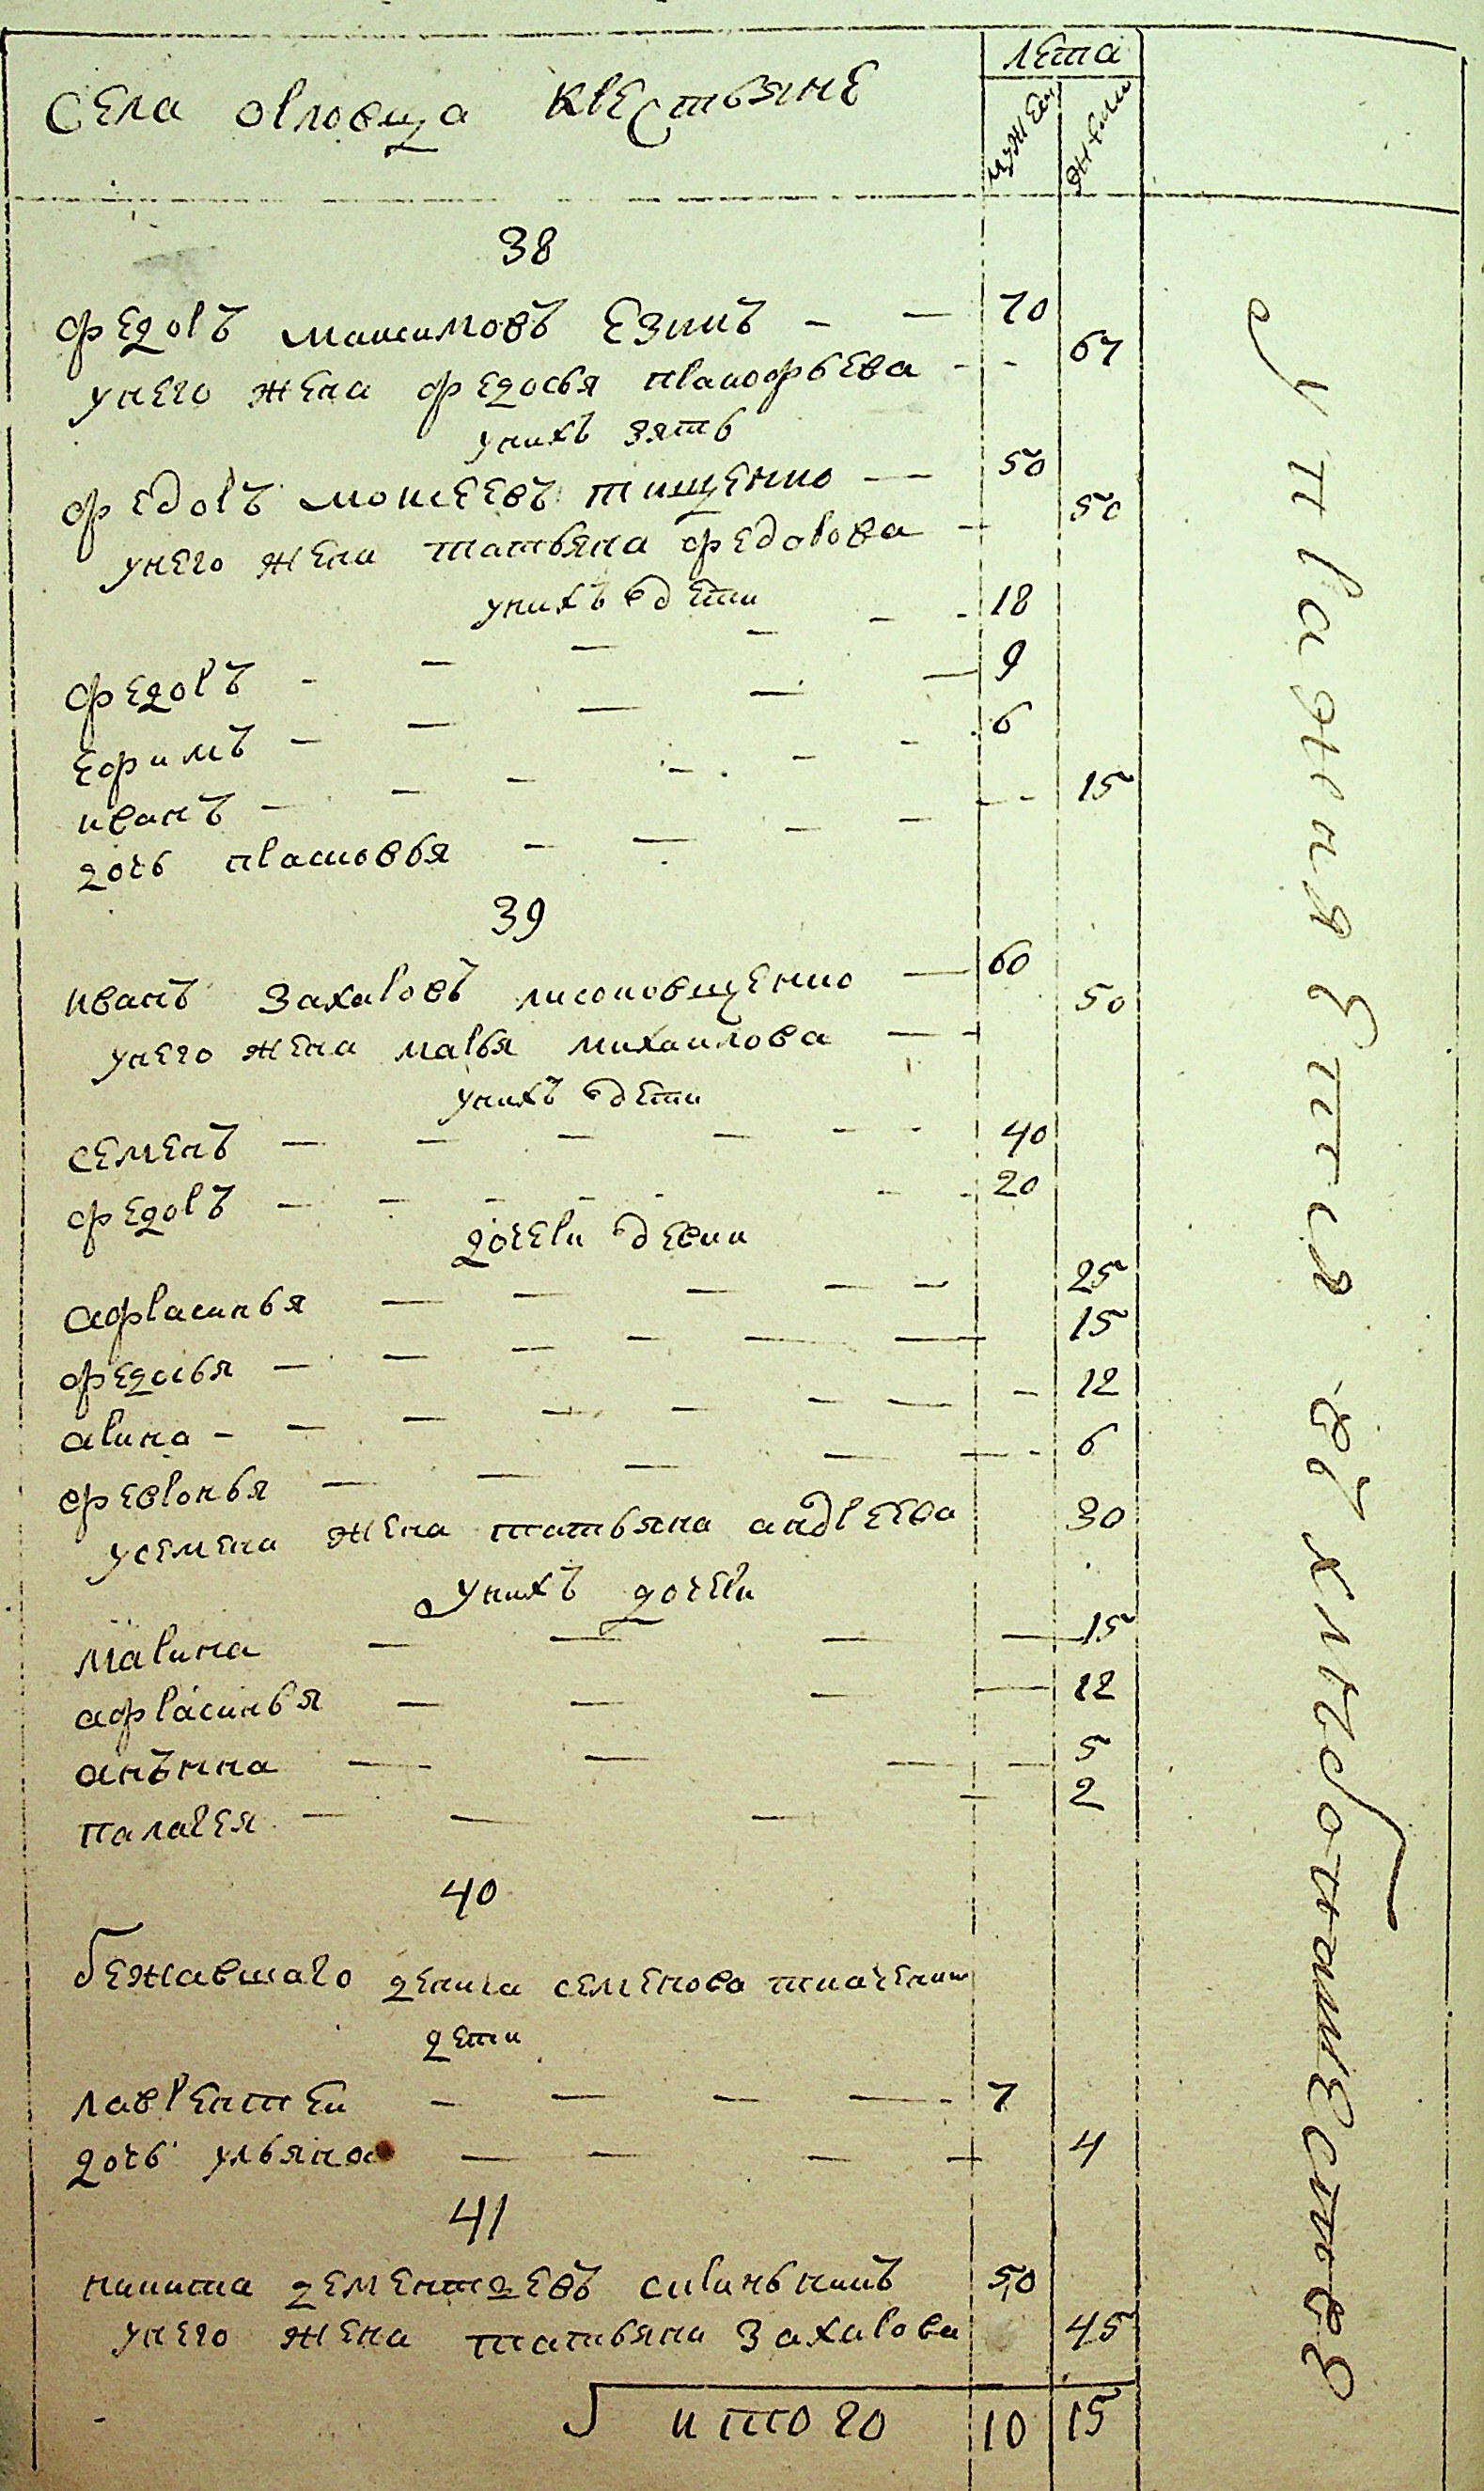 Села Орловца крестьяне
лета
мужен
жен
38
Федоръ Максимовъ Езикъ — — 70
у него жена Федосья Пракофьева — - 67
у нихъ зять
Федоръ Моисеевъ Тищенко — 50
у него жена Татьяна Федорова — 50
у нихъ дети
Федоръ - — — - - 18
Ефимъ - — — — 9
Иванъ - — - - 6
дочь Прасковья - — - - 15
39
Иванъ Захаровъ Лисоковщенко — 60
у него жена Марья Михаилова — 50
у нихъ дети
Семенъ — - — — - - 40
Федоръ — - - - - 20
дочери девки
Афрасинья — — — — 25
Федосья — — — - — — 15
Арина - — — — - - — 12
Февронья — — — — 6
у Семена жена Татьяна Андреева 30
у нихъ дочери
Марина — — — — 15
Афрасинья — — — — 12
Анънна — — — — 5
Палагея — — — — 2
40
бежавшаго Дениса Семенова Ткаченка
дети
Лаврентеи - — — — 7
дочь Ульяна — — — — 4
41
Никита Дементдевъ Сиринькикъ 50
у него жена Татьяна Захарова 45
итого 10 15
Упражняется въ хлебопашестве